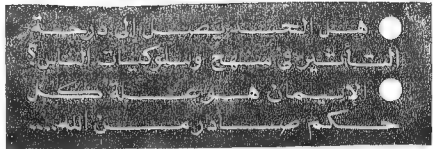 هل النجمة يتصل إلى درجة
التأثير في منهج وسلوكيات الناس؟
الايمان هو بمهلة كل
حكم صادر من الله...